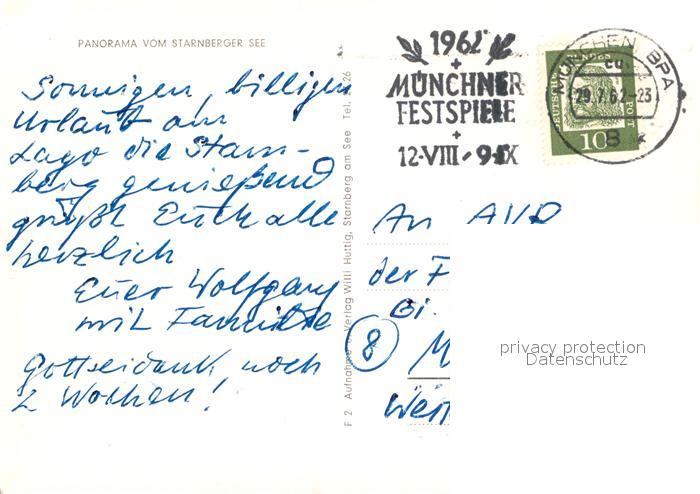 PANORAMA VOM STARNBERGER SEE
Sonnigen, billigen
Urlaub am
Lago die Starn-
berg genießend
grüßt Euch alle
herzlich
Euer Wolfgang
mit Familie
Gottseidank noch
2 Wochen!
F 2 Aufnahme u. Verlag Willi Huttig, Starnberg am See Tel.
1962
+
MÜNCHNER
FESTSPIELE
+
12·VIII - 9·IX
MÜNCHEN BPA
29.7.62-23
8
DEUTSCHE BUNDESPOST
10
An
der F
Bi.
8 M
privacy protection
Datenschutz